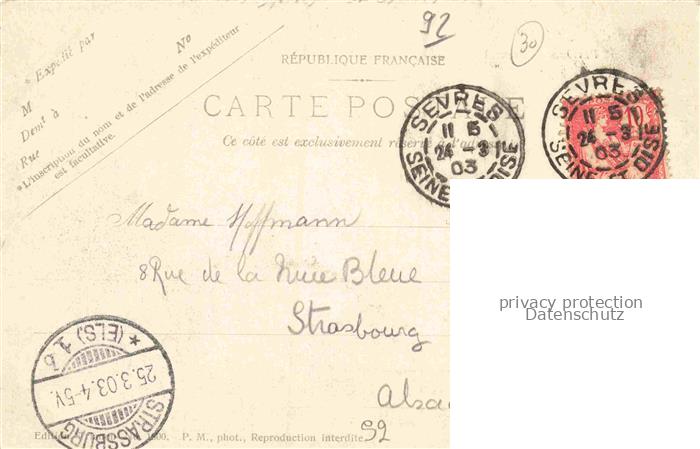 92
30
* Expédié par
No
M
Demt à
Rue
*L'inscription du nom et de l'adresse de l'expéditeur
est facultative.
RÉPUBLIQUE FRANÇAISE
CARTE POSTALE
Ce côté est exclusivement réservé à l'adresse
SEVRES
11 5
24 - 3
03
SEINE ET OISE
SEVRES
11 5
24 - 3
03
SEINE ET OISE
Madame Hoffmann
8 Rue de la Nuée Bleue
Strasbourg
Alsa
privacy protection
Datenschutz
* (ELS) 1 b
25.3.03.4-5V.
STRASSBURG
1900. P. M., phot., Reproduction interdite
S2